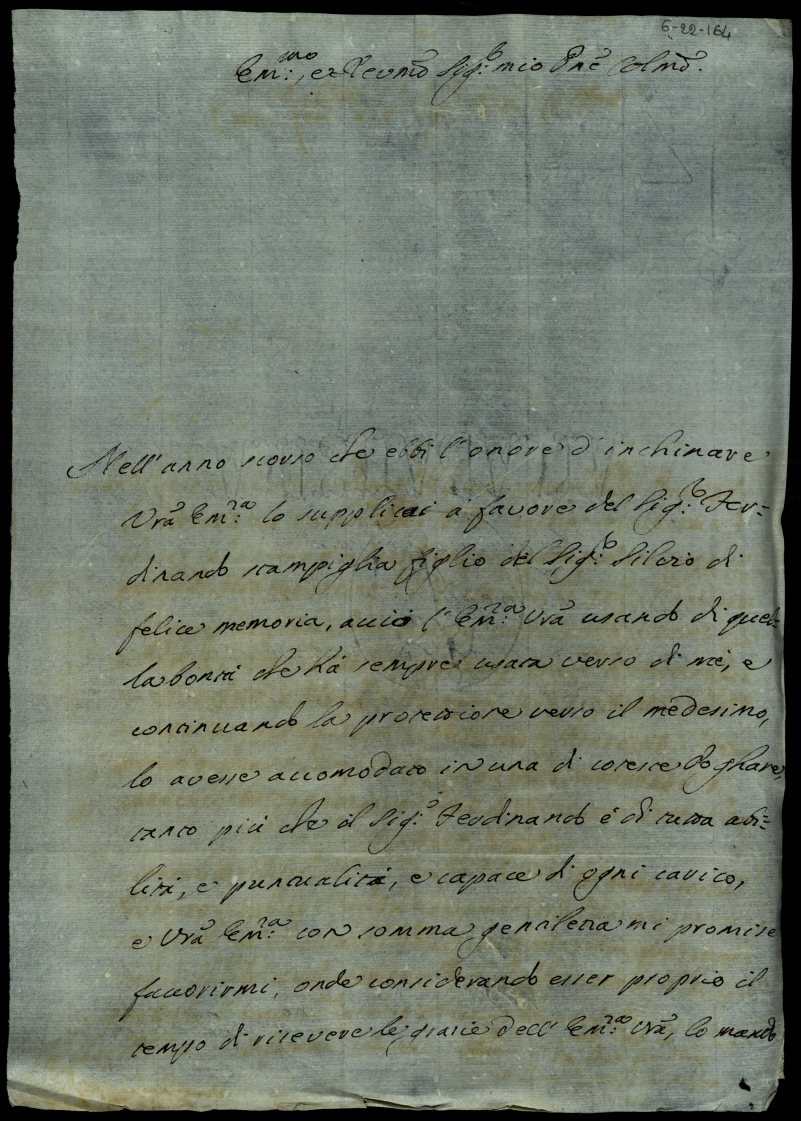 6-22-164
Em:mo, et Reumo Sig:r mio Pne Colmo.
Nell'anno scorso che ebbi l'onore d'inchinare
Vra Em:za lo supplicai á favore del Sig:r Fer=
dinando stampiglia figlio del Sig:r Silvio di
felice memoria, acció l'Em:za Vra usando di quel=
la bontá che há sempre usata verso di me, e
continuando la protezzione verso il medesimo,
lo avesse accomodato in una di coteste Doghane,
tanto piú che il Sig:r Ferdinando é di tutta abi=
litá, e puntualitá, e capace di ogni carico,
e Vra Em:za con somma gentilezza mi promise
favorirmi, onde considerando esser proprio il
tempo di ricevere le grazie dell'Em:za Vra, lo mando